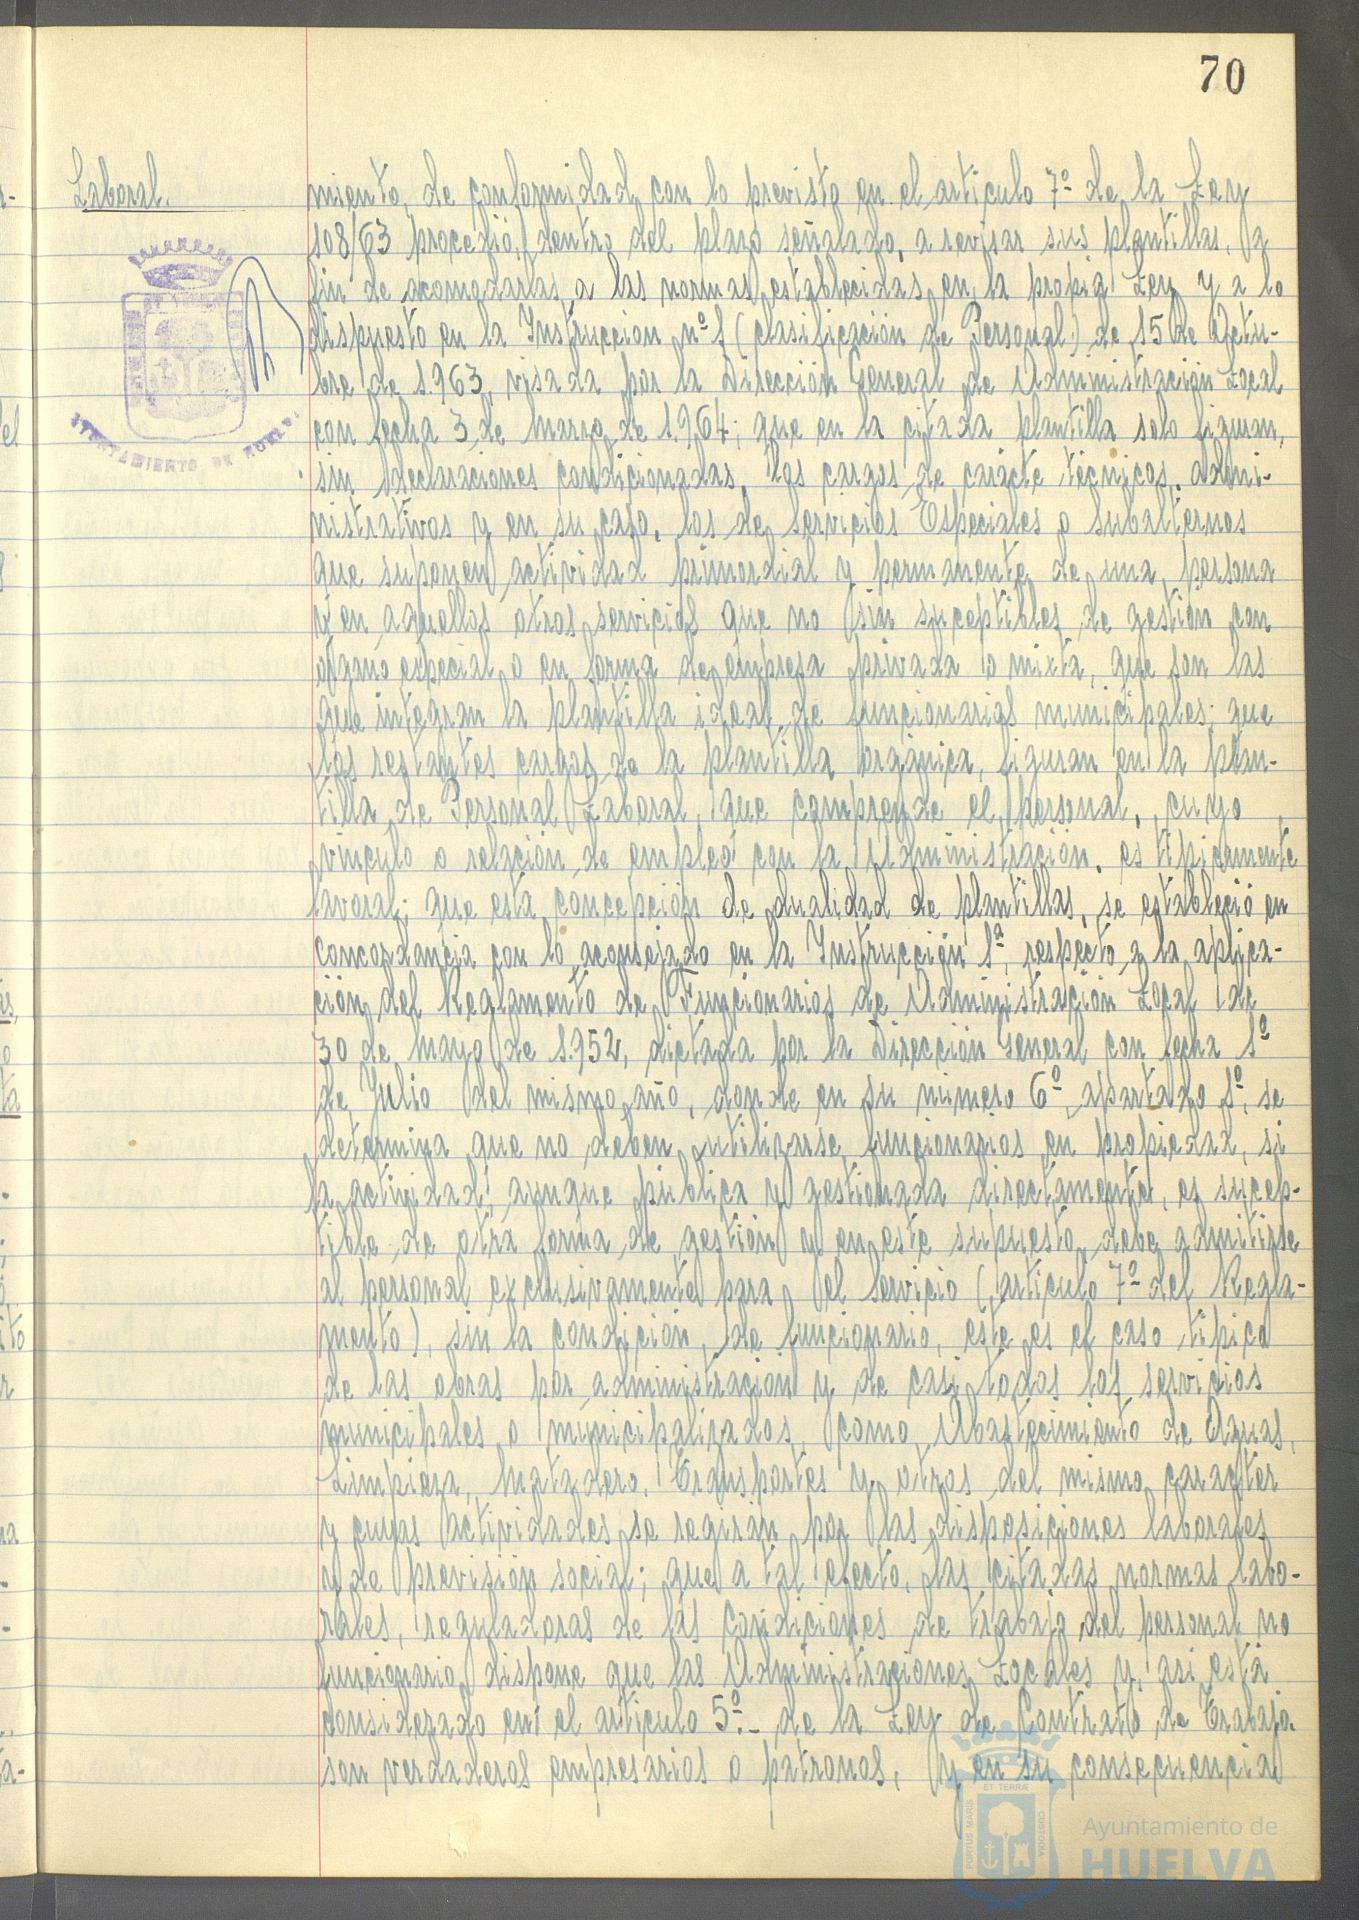 70
Laboral.
AYUNTAMIENTO DE HUELVA
miento, de conformidad con lo previsto en el artículo 7º de la Ley
108/63 procedió, dentro del plazo señalado, a revisar sus plantillas, a
fin de acomodarlas a las normas establecidas en la propia Ley y a lo
dispuesto en la Instrucción nº 1 (clasificación de Personal) de 15 de Octu-
bre de 1.963, visada por la Dirección General de Administración Local
con fecha 3 de Marzo de 1.964; que en la citada plantilla solo figuran,
sin declaraciones condicionadas, los cargos de carácte técnicos, admi-
nistrativos y en su caso, los de Servicios Especiales o Subalternos
que suponen actividad primordial y permanente de una persona
y en aquellos otros servicios que no sin suceptibles de gestión con
órgano especial o en forma de empresa privada o mixta, que son las
que integran la plantilla ideal de funcionarios municipales; que
los restantes cargos de la plantilla orgánica, figuran en la plan-
tilla de Personal Laboral, que comprende el personal, cuyo
vínculo o relación de empleo con la Administración, es típicamente
lavoral; que esta concepción de dualidad de plantillas, se estableció en
concordancia con lo aconsejado en la Instrucción 1ª, respecto a la aplica-
ción del Reglamento de Funcionarios de Administración Local de
30 de Mayo de 1.952, dictada por la Dirección General con fecha 1º
de Julio del mismo año, donde en su número 6º, apartado 1º, se
determina que no deben utilizarse funcionarios en propiedad, si
la actividad, aunque pública y gestionada directamente, es sucep-
tible de otra forma de gestión y en este supuesto, debe admitirse
al personal exclusivamente para el Servicio (artículo 7º del Regla-
mento), sin la condición de funcionario, este es el caso típico
de las obras por administración y de casi todos los servicios
municipales o municipalizados, como, Abastecimiento de Aguas,
Limpieza, Matadero, Transportes y otros del mismo carácter
y cuyas actividades se regirán por las disposiciones laborales
y de previsión social; que a tal efecto, las citadas normas labo-
rales, reguladoras de las condiciones de trabajo del personal no
funcionario dispone que las Administraciones Locales y, así está
considerado en el artículo 5º.- de la Ley de Contrato de Trabajo.
son verdaderos empresarios o patronos, y en su consecuencia
PORTUS MARIS ET TERRAE CUSTODIA
Ayuntamiento de
HUELVA